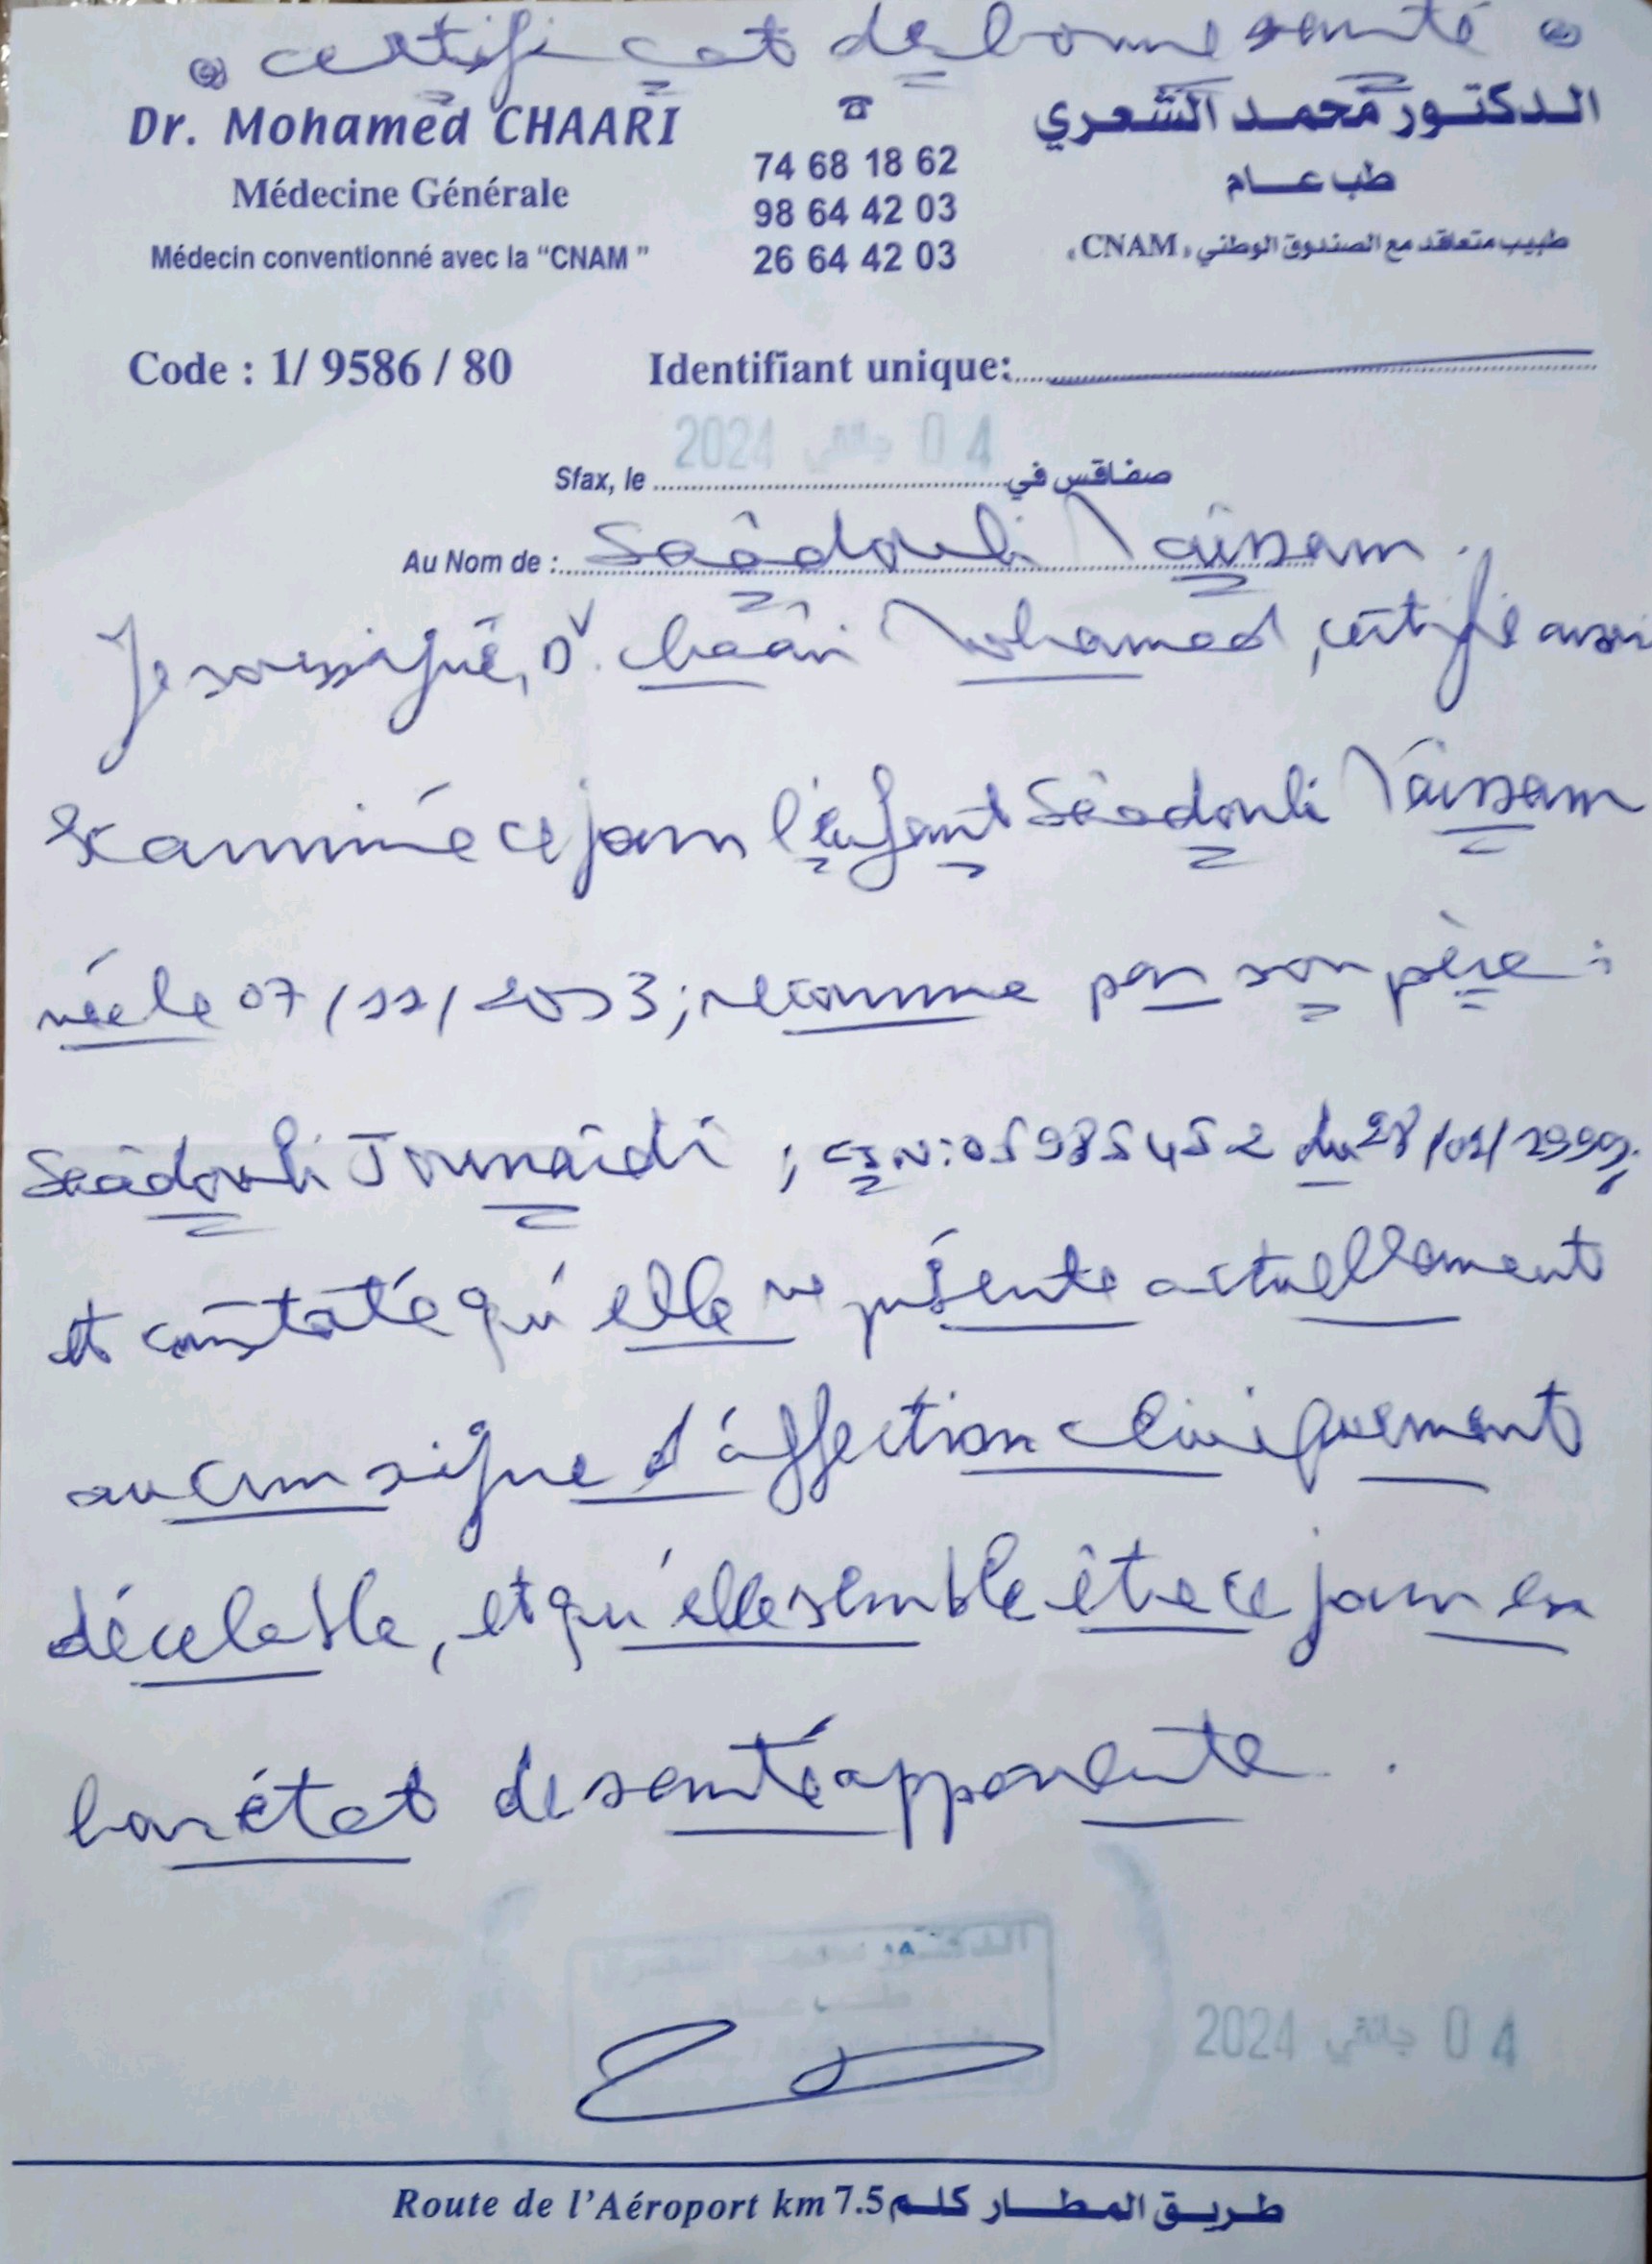 certificat de bonne santé
Dr. Mohamed CHAARI
Médecine Générale
Médecin conventionné avec la "CNAM "
☎
74 68 18 62
98 64 42 03
26 64 42 03
الدكتور محمد الشعري
طب عام
طبيب متعاقد مع الصندوق الوطني «CNAM»
Code : 1/ 9586 / 80 Identifiant unique:
Sfax, le 04 جانفي 2024 صفاقس في
Au Nom de : Saâdouli
Je soussigné, Dr. Chaâri Mohamed, certifie avoir
Examiné ce jour l'enfant Saâdouli
née le 07/11/2013; reconnue par son père :
Saâdouli ; CIN: 05985452 du 28/01/1999;
et constaté qu'elle ne présente actuellement
aucun signe d'affection cliniquement
décelable, et qu'elle semble être ce jour en
bon état de santé apparente.
04 جانفي 2024
Route de l'Aéroport km 7.5 طريق المطار كلم